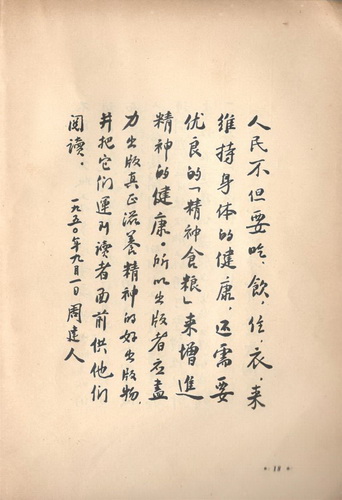 人民不但要吃，飲，住，衣，来
维持身体的健康，还需要
优良的「精神食粮」来增進
精神的健康。所以出版者应盡
力出版真正滋養精神的好出版物，
并把它们運到读者面前供他们
阅读。
一九五〇年九月一日 周建人
·18·